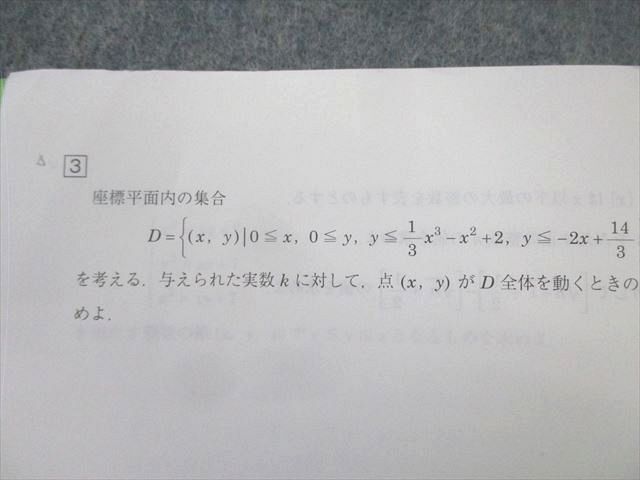 3
座標平面内の集合
D={(x, y)|0≦x, 0≦y, y≦1/3 x³-x²+2, y≦-2x+14/3
を考える. 与えられた実数 k に対して, 点 (x, y) が D 全体を動くときの
めよ.